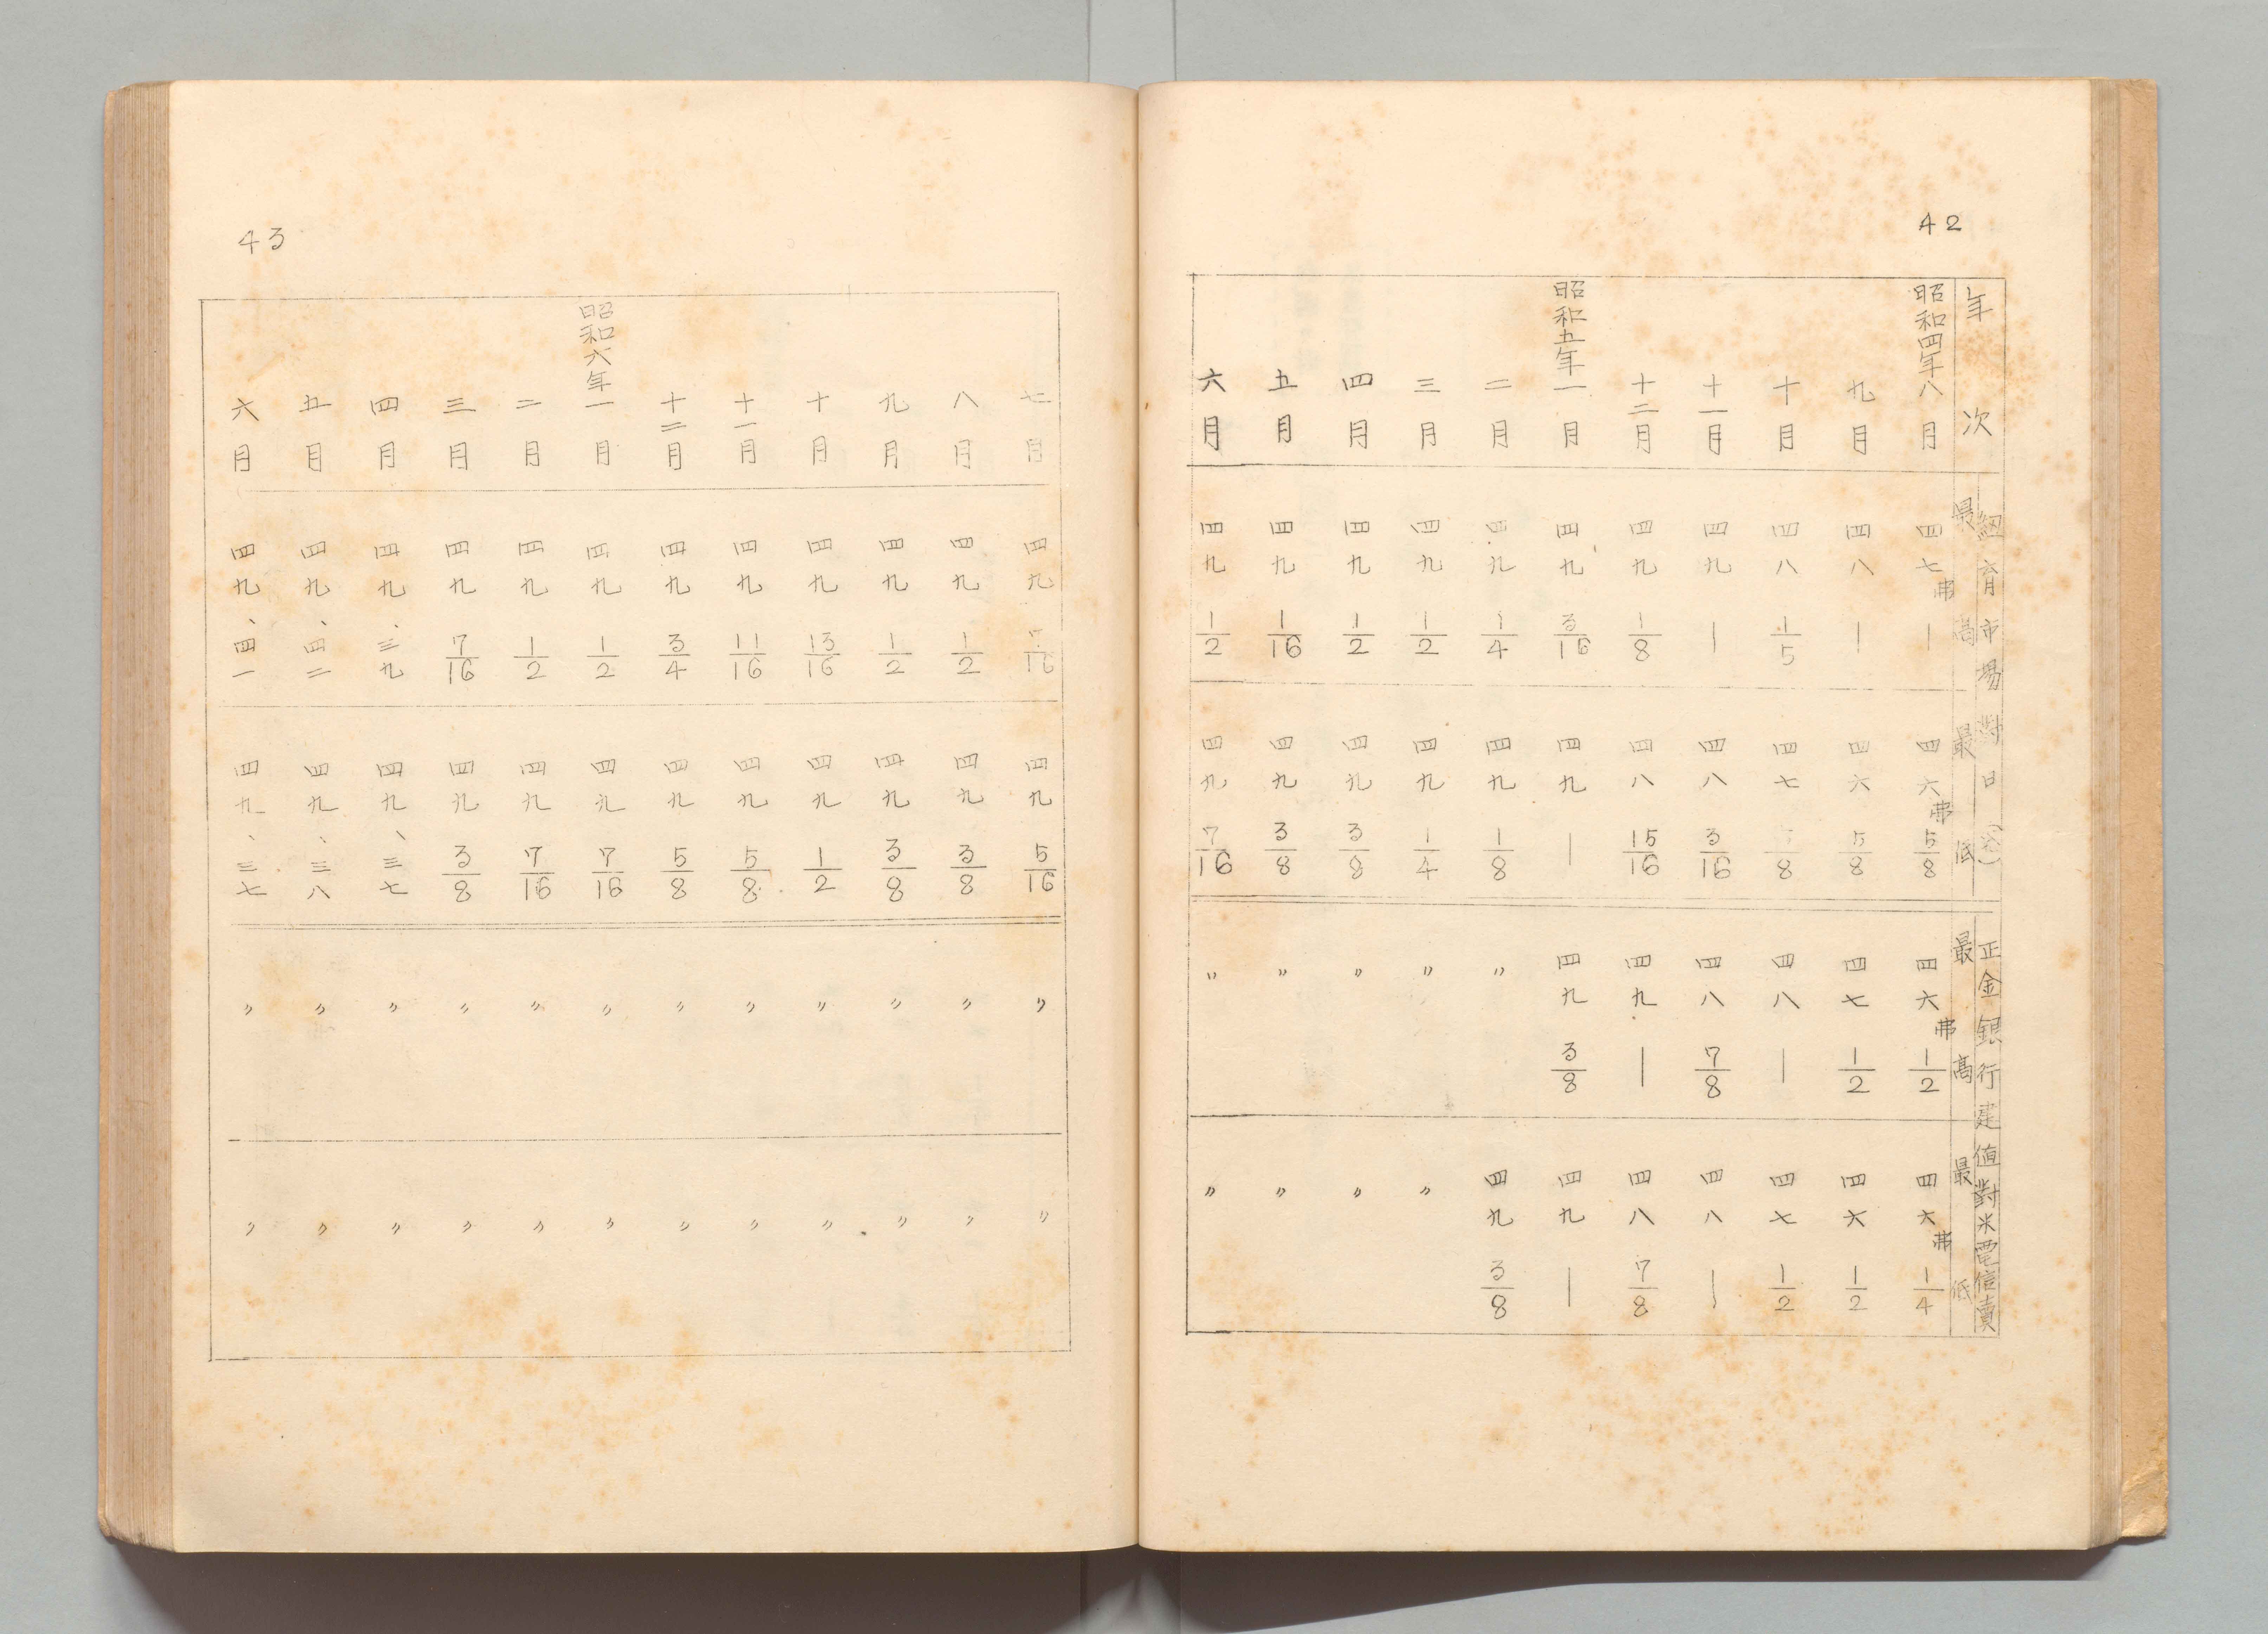 42
年次
紐育市場對日
最高
最低
正金銀行建値對米電信賣
最高
最低
昭和四年八月 四七弗 | 四六弗 5/8 四六弗 1/2 四六弗 1/4
九月 四八 | 四六 5/8 四七 1/2 四六 1/2
十月 四八 1/5 四七 /8 四八 | 四七 1/2
十一月 四九 | 四八 3/16 四八 7/8 四八 |
十二月 四九 1/8 四八 15/16 四九 | 四八 7/8
昭和五年一月 四九 3/16 四九 | 四九 3/8 四九 |
二月 四九 1/4 四九 1/8 〃 四九 3/8
三月 四九 1/2 四九 1/4 〃 〃
四月 四九 1/2 四九 3/8 〃 〃
五月 四九 1/16 四九 3/8 〃 〃
六月 四九 1/2 四九 7/16 〃 〃
43
七月 四九 7/16 四九 5/16 〃 〃
八月 四九 1/2 四九 3/8 〃 〃
九月 四九 1/2 四九 3/8 〃 〃
十月 四九 13/16 四九 1/2 〃 〃
十一月 四九 11/16 四九 5/8 〃 〃
十二月 四九 3/4 四九 5/8 〃 〃
昭和六年一月 四九 1/2 四九 7/16 〃 〃
二月 四九 1/2 四九 7/16 〃 〃
三月 四九 7/16 四九 3/8 〃 〃
四月 四九、三九 四九、三七 〃 〃
五月 四九、四二 四九、三八 〃 〃
六月 四九、四一 四九、三七 〃 〃